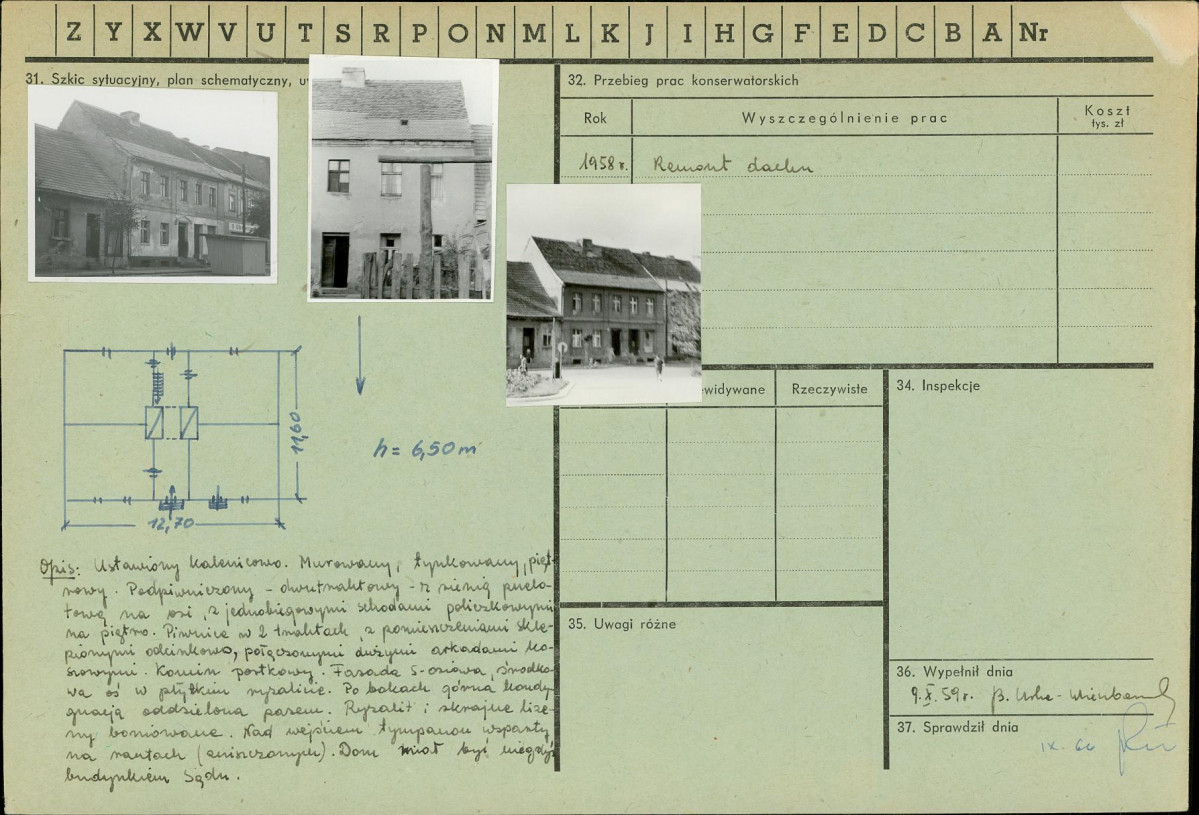 Z Y X W V U T S R P O N M L K J I H G F E D C B A Nr
31. Szkic sytuacyjny, plan schematyczny, u
32. Przebieg prac konserwatorskich
Rok
Wyszczególnienie prac
Koszt
tys. zł
1958 r.
Remont dachu
h = 6,50 m
11,60
12,70
ewidywane
Rzeczywiste
34. Inspekcje
Opis: Ustawiony kalenicowo. Murowany, tynkowany, pięt-
rowy. Podpiwniczony - dwutraktowy - z sienią przelo-
tową na osi, z jednobiegowymi schodami policzkowymi
na piętro. Piwnice w 2 traktach, z pomieszczeniami skle-
pionymi odcinkowo, połączonymi dużymi arkadami ko-
szowymi. Komin portkowy. Fasada 5-osiowa, środko-
wa oś w płytkim ryzalicie. Po bokach górna kondy-
gnacja oddzielona pasem. Ryzalit i skrajne lize-
ny boniowane. Nad wejściem tympanon wsparty
na kantach (zniszczonych). Dom miał być niegdyś
budynkiem Sądu.
35. Uwagi różne
36. Wypełnił dnia
9.X.59r. B.
37. Sprawdził dnia
IX. 66